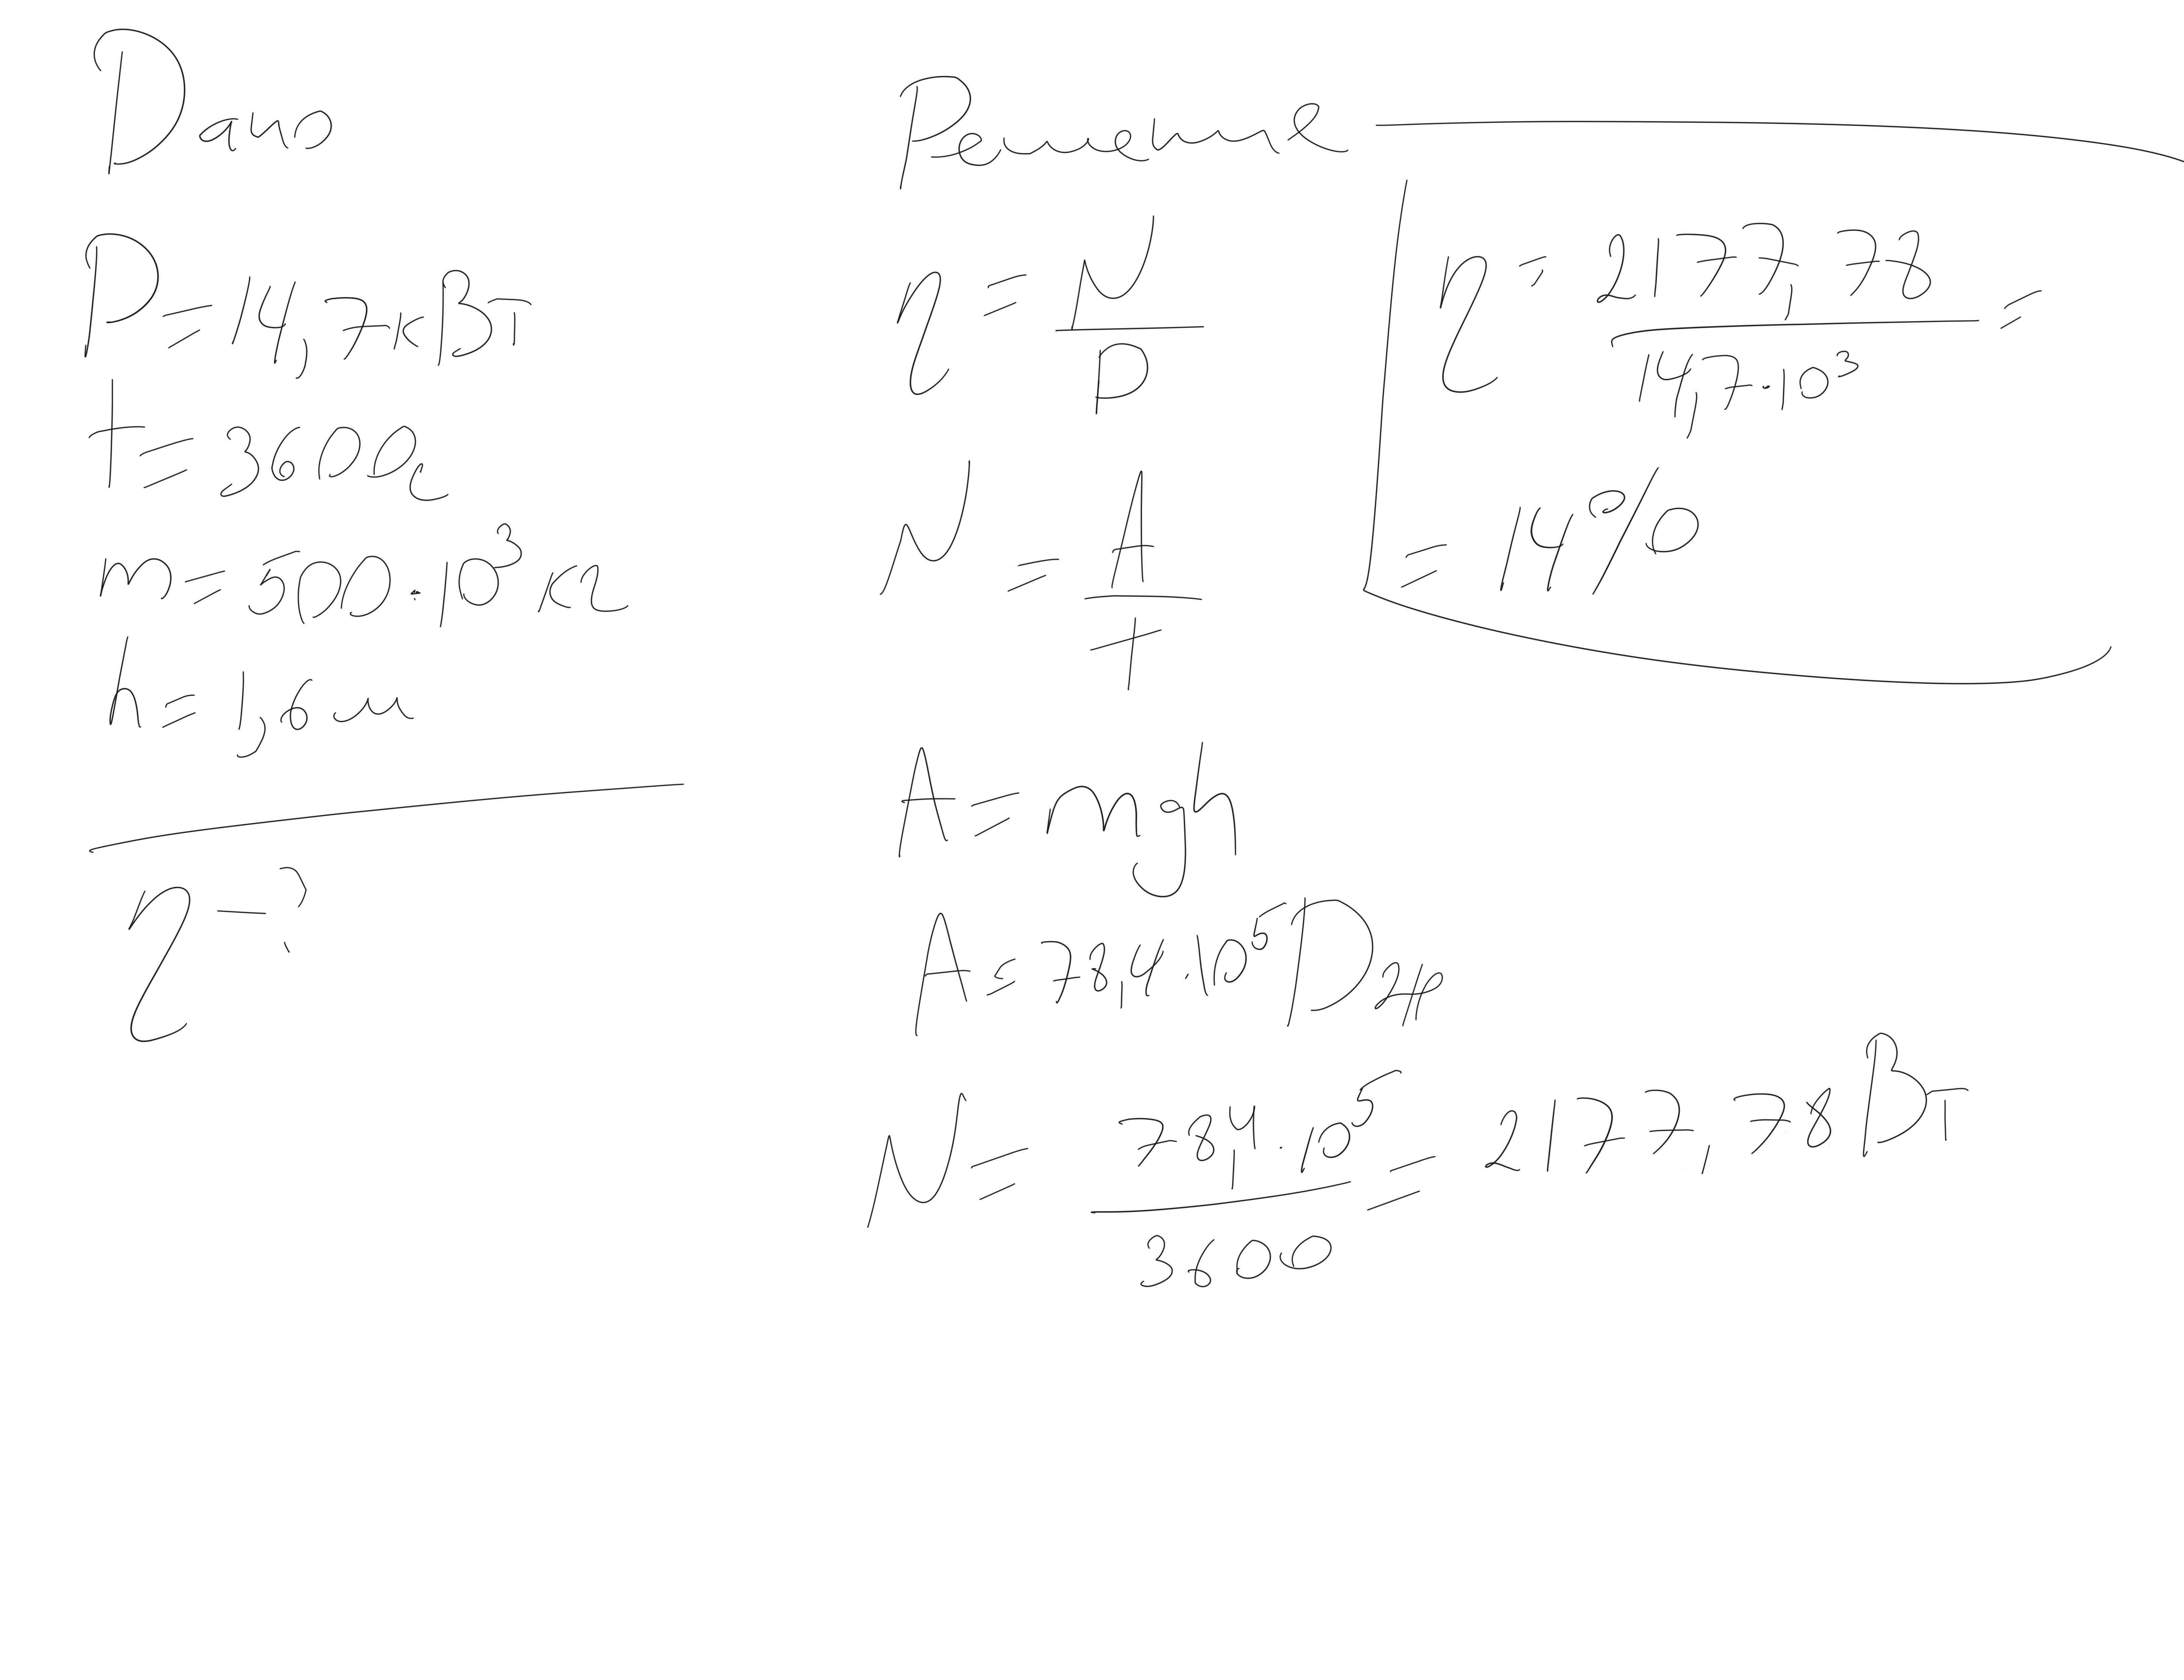 Дано
P = 14,7 кВт
t = 3600 с
m = 500 · 10³ кг
h = 1,6 м
η - ?
Решение
η = N / P
N = A / t
A = mgh
A = 78,4 · 10⁵ Дж
N = 78,4 · 10⁵ / 3600 = 2177,78 Вт
η = 2177,78 / 14,7 · 10³ =
= 14%